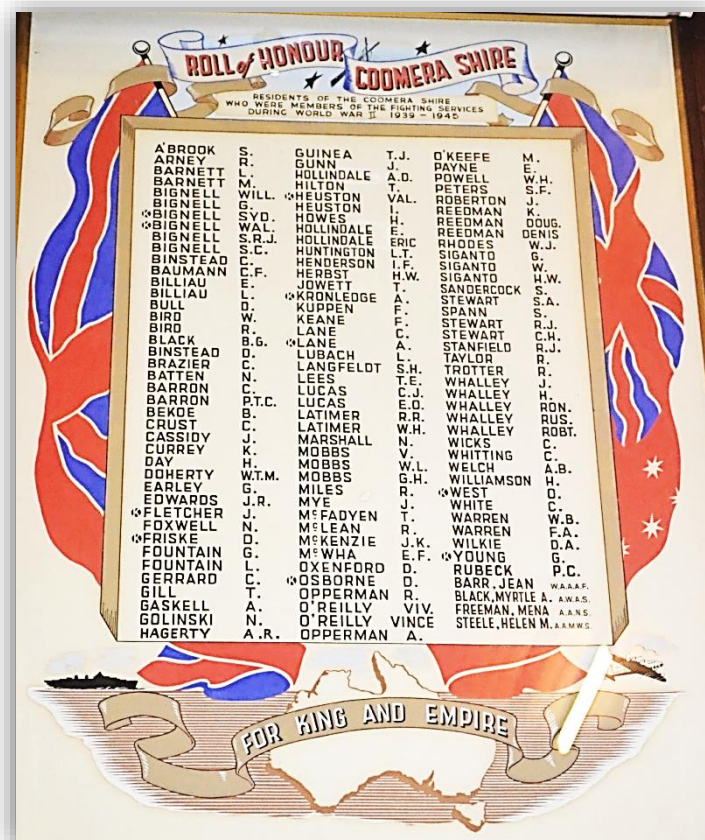 ROLL of HONOUR
COOMERA SHIRE
RESIDENTS OF THE COOMERA SHIRE
WHO WERE MEMBERS OF THE FIGHTING SERVICES
DURING WORLD WAR II 1939 - 1945
A'BROOK S.
ARNEY R.
BARNETT L.
BARNETT M.
BIGNELL WILL.
BIGNELL G.
K BIGNELL SYD.
K BIGNELL WAL.
BIGNELL S.R.J.
BIGNELL S.C.
BINSTEAD C.
BAUMANN C.F.
BILLIAU E.
BILLIAU L.
BULL D.
BIRD W.
BIRD R.
BLACK B.G.
BINSTEAD D.
BRAZIER C.
BATTEN N.
BARRON C.
BARRON P.T.C.
BEKOE B.
CRUST C.
CASSIDY J.
CURREY K.
DAY H.
DOHERTY W.T.M.
EARLEY G.
EDWARDS J.R.
K FLETCHER J.
FOXWELL N.
K FRISKE D.
FOUNTAIN G.
FOUNTAIN L.
GERRARD C.
GILL T.
GASKELL A.
GOLINSKI N.
HAGERTY A.R.
GUINEA T.J.
GUNN J.
HOLLINDALE A.D.
HILTON T.
K HEUSTON VAL.
HEUSTON I.
HOWES H.
HOLLINDALE E.
HOLLINDALE ERIC
HUNTINGTON L.T.
HENDERSON I.F.
HERBST H.W.
JOWETT T.
K KRONLEDGE A.
KUPPEN F.
KEANE F.
LANE C.
K LANE A.
LUBACH L.
LANGFELDT S.H.
LEES T.E.
LUCAS C.J.
LUCAS E.D.
LATIMER R.R.
LATIMER W.H.
MARSHALL N.
MOBBS V.
MOBBS W.L.
MOBBS G.H.
MILES R.
MYE J.
McFADYEN T.
McLEAN R.
McKENZIE J.K.
McWHA E.F.
OXENFORD D.
K OSBORNE D.
OPPERMAN R.
O'REILLY VIV.
O'REILLY VINCE
OPPERMAN A.
O'KEEFE M.
PAYNE E.
POWELL W.H.
PETERS S.F.
ROBERTON J.
REEDMAN K.
REEDMAN DOUG.
REEDMAN DENIS
RHODES W.J.
SIGANTO G.
SIGANTO W.
SIGANTO H.W.
SANDERCOCK S.
STEWART S.A.
SPANN S.
STEWART R.J.
STEWART C.H.
STANFIELD R.J.
TAYLOR R.
TROTTER R.
WHALLEY J.
WHALLEY H.
WHALLEY RON.
WHALLEY RUS.
WHALLEY ROBT.
WICKS C.
WHITTING C.
WELCH A.B.
WILLIAMSON H.
K WEST D.
WHITE C.
WARREN W.B.
WARREN F.A.
WILKIE D.A.
K YOUNG G.
RUBECK P.C.
BARR, JEAN W.A.A.A.F.
BLACK, MYRTLE A. A.W.A.S.
FREEMAN, MENA A.A.N.S.
STEELE, HELEN M. A.A.M.W.S.
FOR KING AND EMPIRE